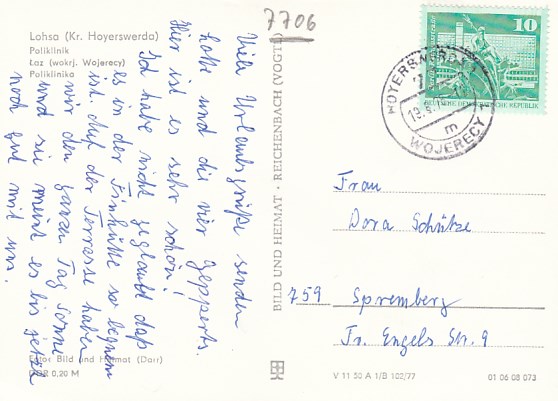 Lohsa (Kr. Hoyerswerda)
Poliklinik
Łaz (wokrj. Wojerecy)
Poliklinika
Viele Urlaubsgrüße senden
Lotte und die vier Gepperts.
Hier ist es sehr schön!
Ich habe nicht geglaubt daß
es in der Finnhütte so bequem
ist. Auf der Terrasse haben
wir den ganzen Tag Sonne
und sie meint es bis jetzt
noch gut mit uns.
Foto: Bild und Heimat (Darr)
0,20 M
BILD UND HEIMAT · REICHENBACH (VOGTL)
7706
10
DEUTSCHE DEMOKRATISCHE REPUBLIK
HOYERSWERDA 1
m
WOJERECY
Frau
Dora Schütze
759 Spremberg
Fr. Engels Str. 9
V 11 50 A 1/B 102/77
01 06 08 073